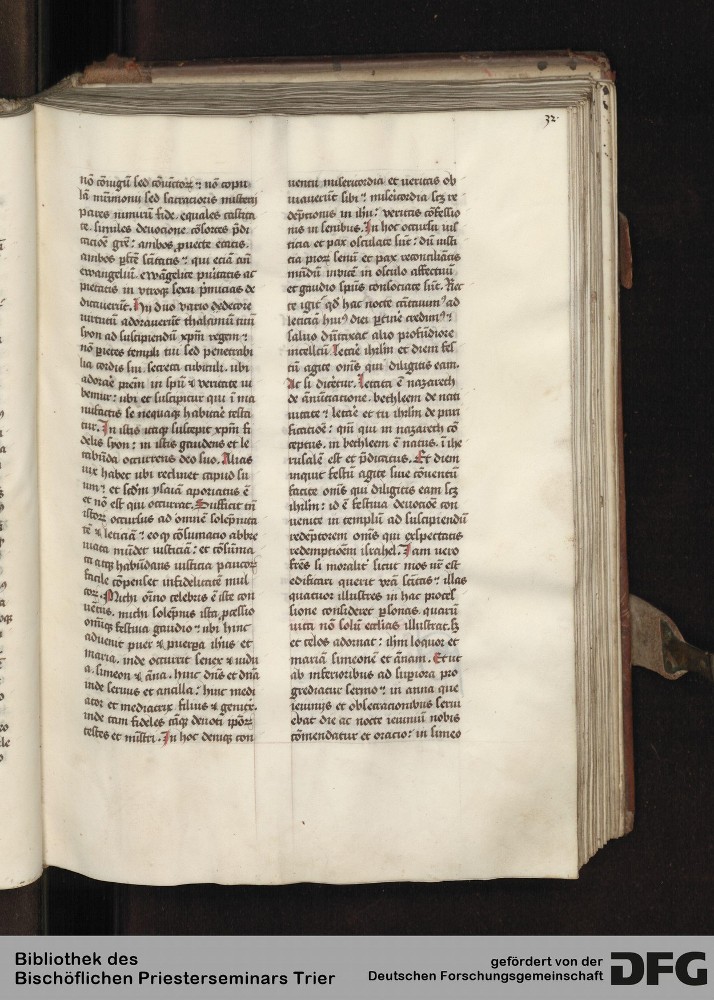 32.
nō cōiugiū sed cōiūctoꝝ ⁊ nō copu
lā mr̄imonii sed sacracioris misterij
pares nimiruȝ fide. equales castita
te. similes deuocione. cōsortes p̄di
cacioē gr̄e: ambos ꝓuecte etatis.
ambos ꝑfcē sc̄itatis ⁊ qui eciā an̄
ewangeliū. ewāgelice puritatis ac
pietatis in vtroqȝ sexu p̄micias de
dicauerūt. Hii duo vario dedecore
virtutū adorauerūt thalamū tuū
syon ad suscipiendū xpm̄ regem ⁊
nō parietes templi tui sed penetrabi
lia cordis sui. secreta cubiculi. ubi
adorāt prēm in spū ⁊ veritate vi
In istis itaqȝ suscepit xpm̄ fi
delis syon: in istis gaudens et le
tabūda occurrens deo suo. Alias
uix habet ubi reclinet capud su
um ⁊ et scd̄m ysaiā aporiatus ē
et nō est qui occurrat. Sufficit tn̄
istoꝝ occursus ad omnē solēpnita
tē ⁊ leticiā ⁊ eo qȝ cōsumacio abbre
uiata inūdet iusticiā: et cōsūma
ta atqȝ habūdans iusticia paucoꝝ
facile cōpenset infidelitatē mul
toꝝ. Michi oīno celebris ē iste con
uētus. michi solēpnis ista ꝓcessio
omīqȝ festiua gaudio ⁊ ubi hinc
aduenit puer ⁊ puerꝑa ihūs et
maria. inde occurrit senex ⁊ uidu
a. simeon ⁊ āna. hinc dn̄s et dn̄a
inde seruus et ancilla: hinc medi
ator et mediatrix. filius ⁊ genitrix.
inde tam fideles tāqȝ deuoti ip̄oꝝ
testes et mīstri. In hoc deniqȝ con
uentu misericordia et ueritas ob
uiauerūt sibi ⁊ misericordia scȝ re
dēpcionis in ihū: veritas cōfessio
nis in senibus. In hoc occursu ius
ticia et pax osculate sūt: dū iusti
cia pioꝝ senū et pax reconciliātis
mūdū inuicē in osculo affectuū
et gaudio spūs consociate sūt. Rec
te igit̄ qd̄ hac nocte cātauim9 ad
leticiā hui9 diei ꝑtinē credim9 ⁊
saluo dūtaxat alio profūdiore
intellcū. Letar̄e ihrl̄m et diem fes
tū agite om̄s qui diligitis eam.
Ac si dicēt̄ur. Letata ē nazareth
de ānūctacione. bethleem de nati
uitate ⁊ letar̄e et tu ihrl̄m de puri
ficacioē: qm̄ qui in nazareth cō
ceptus. in bethleem ē natus. ī ihe
rusalē est et p̄dicatus. Et diem
inquit festū agite siue cōuentū
facite om̄s qui diligitis eam scȝ
ihrl̄m: id ē festiua deuocioē con
uenite in templū ad suscipiendū
redēptorem om̄s qui exspectatis
redemptionē israhel. Iam uero
fr̄es si moralit̄ sicut mos ur̄e est
edificari querit vr̄a sc̄itas ⁊ illas
quatuor illustres in hac proces
sione consideret ꝑsonas. quarū
uita nō solū ecc̄lias illustrat. sȝ
et celos adornat: ihm̄ loquor et
mariā simeonē et ānam. Et ut
ab inferioribus ad suꝑiora pro
grediatur sermo ⁊ in anna que
ieiunijs et obsecracionibus serui
ebat die ac nocte ieiuniū nobis
cōmendatur et oracio: in simeo
Bibliothek des
Bischöflichen Priesterseminars Trier
gefördert von der
Deutschen Forschungsgemeinschaft
DFG